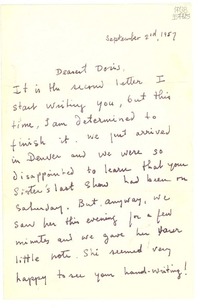 September 2nd, 1957
Dearest Doris,
It is the second letter I
start writing you, but this
time, I am determined to
finish it. We just arrived
in Denver and we were so
disappointed to learn that your
Sister's last show had been on
Saturday. But, anyway, we
saw her this evening for a few
minutes and we gave her your
little note. She seemed very
happy to see your hand-writing!